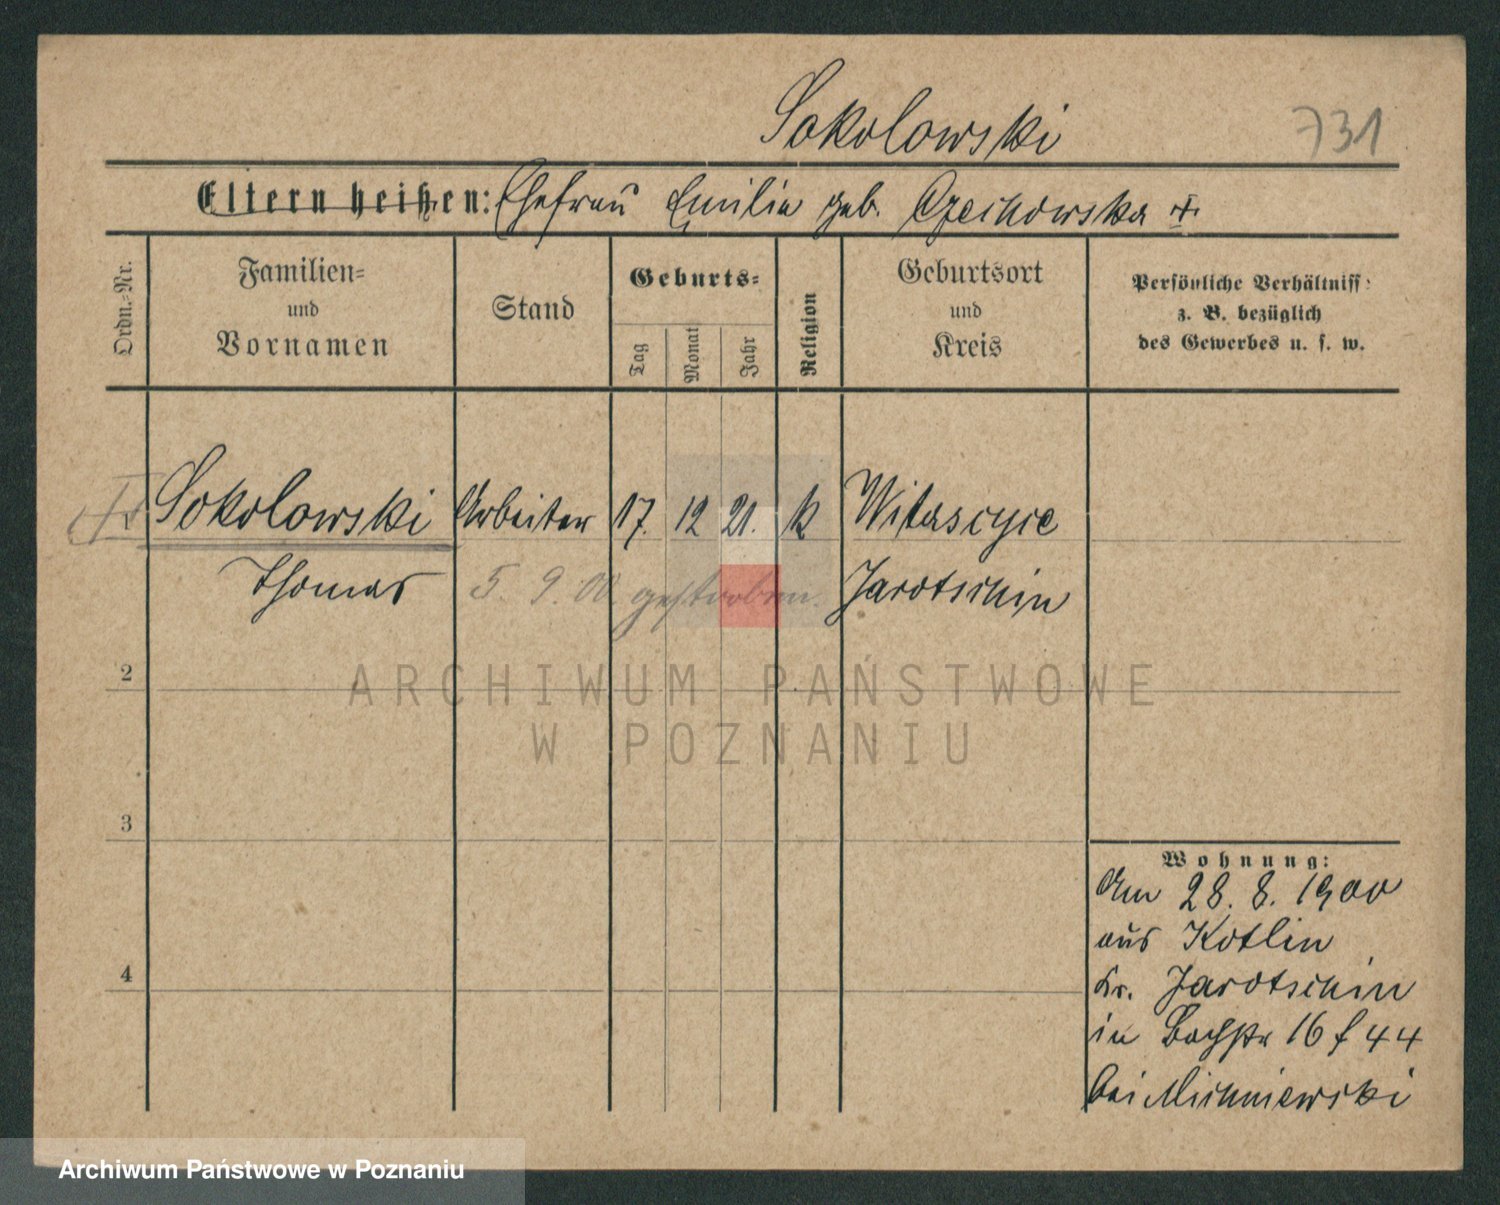 Sokolowski
731
Eltern heißen: Ehefrau Emilie geb. Czechowska +
Ordn.-Nr.
Familien-
und
Vornamen
Stand
Geburts-
Tag
Monat
Jahr
Religion
Geburtsort
und
Kreis
Persönliche Verhältniss
z. B. bezüglich
des Gewerbes u. s. w.
Sokolowski Arbeiter 17. 12 21. k Witascyce
Thomas 5. 9. 00. gestorben. Jarotschin
2
ARCHIWUM PAŃSTWOWE
W POZNANIU
3
Wohnung:
Am 28. 8. 1900
aus Kotlin
4
Kr. Jarotschin
in Bachstr 16 f 44
bei Mischniewski
Archiwum Państwowe w Poznaniu